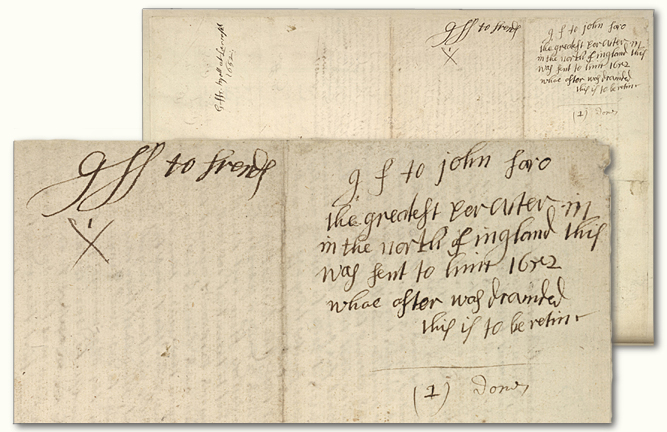 gff to frends
X
g f to john faro
the greatest percuter in
in the north of ingland this
was sent to him 1652
whoe after was drounded
this is to be retur
(1) Done
gff to frends
X
g f to john faro
the greatest percuter in
in the north of ingland this
was sent to him 1652
whoe after was drounded
this is to be retur
(1) Done
1652